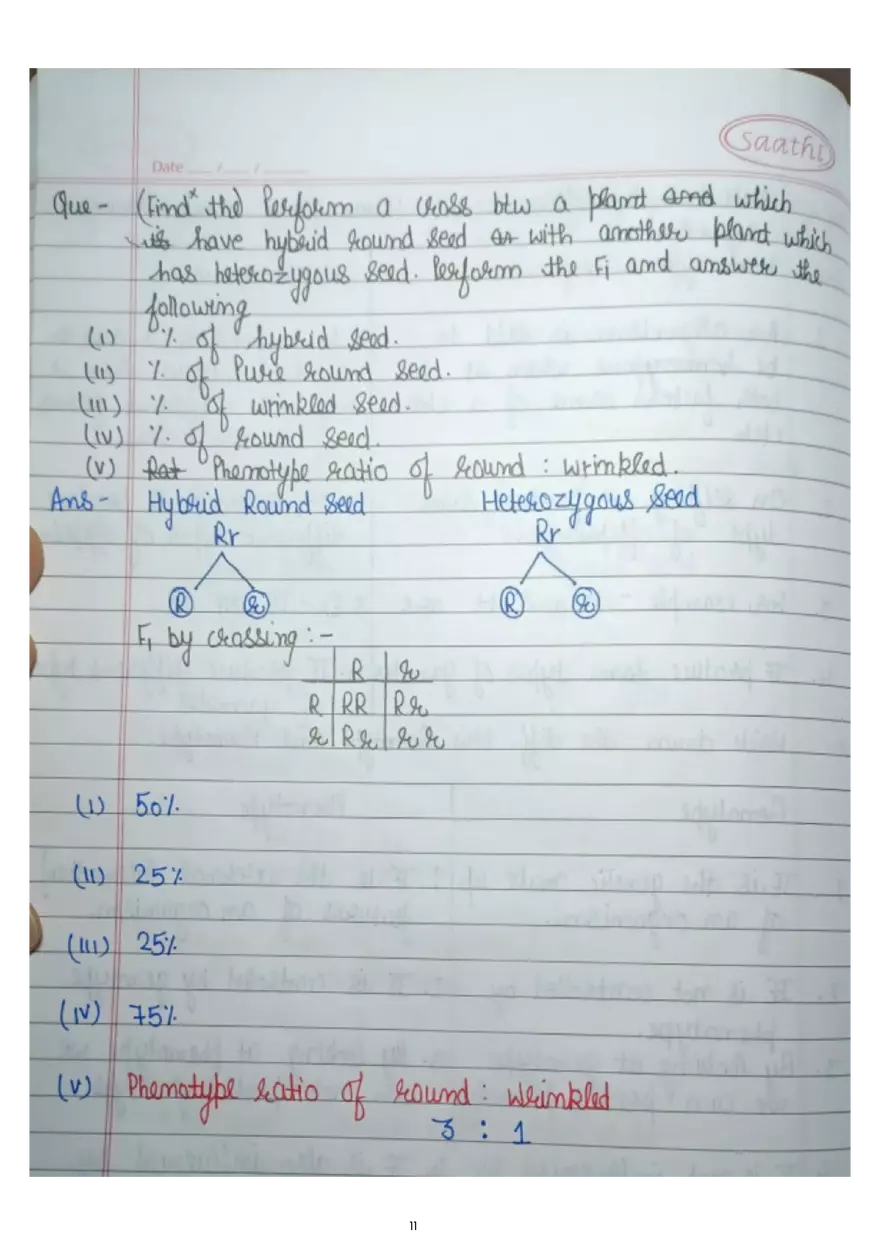 Saathi
Date ___ / ___ / ______
Que - (Find x the) Perform a cross btw a plant and which
is have hybrid round seed as with another plant which
has heterozygous seed. Perform the F1 and answer the
following
(i) % of hybrid seed.
(ii) % of Pure round seed.
(iii) % of wrinkled seed.
(iv) % of round seed.
(v) Rat Phenotype ratio of round : wrinkled.
Ans - Hybrid Round seed Heterozygous seed
Rr Rr
R r R r
F1 by crossing :-
R r
R RR Rr
r Rr r r
(i) 50%
(ii) 25%
(iii) 25%
(iv) 75%
(v) Phenotype ratio of round : wrinkled
3 : 1
11